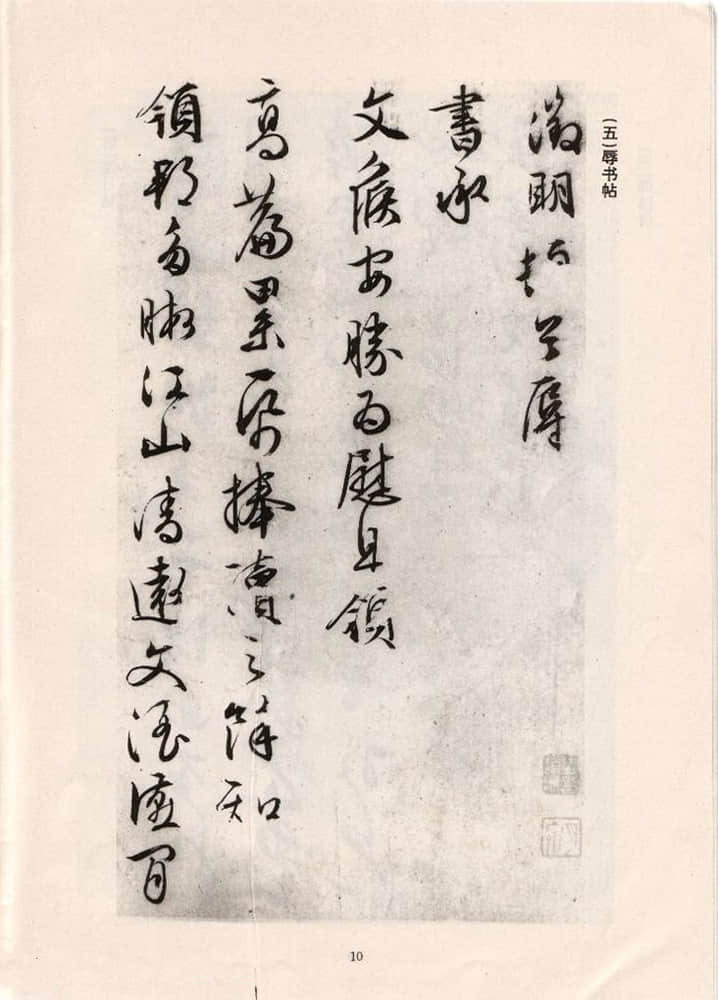 (五)辱书帖
徵明辱
書承
文候安勝為慰且領
高篇累捧讀之餘知
領郡多暇江山清邈文酒讌閒
10